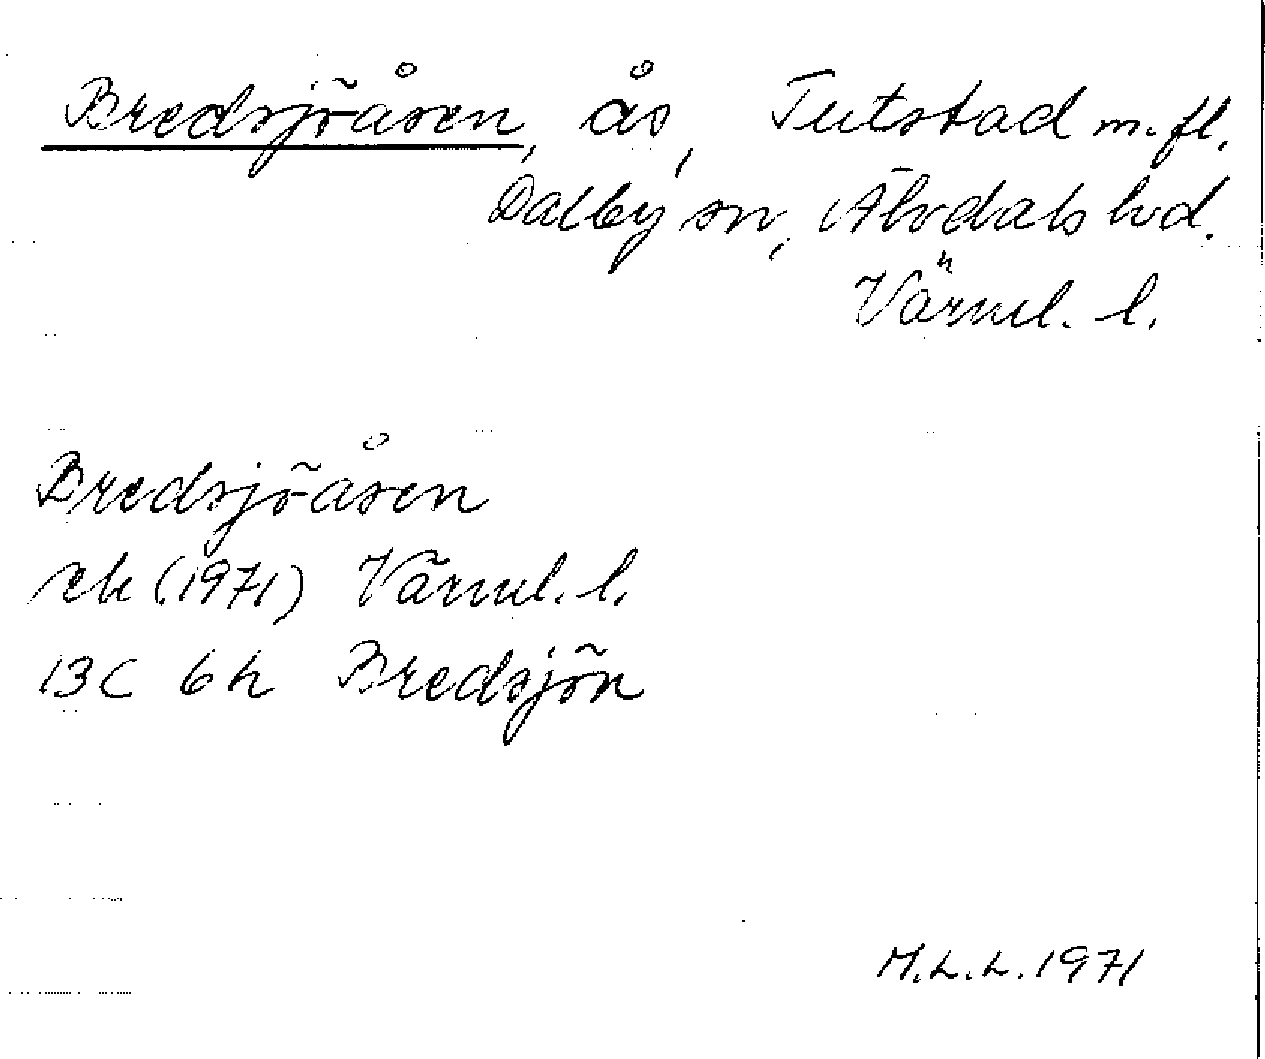 Bredsjöåsen, ås, Tutstad m.fl.
Dalby sn, Älvdals hd.
Värml. l.
Bredsjöåsen
ek (1971) Värml. l.
13C 6h Bredsjön
M.L.L. 1971